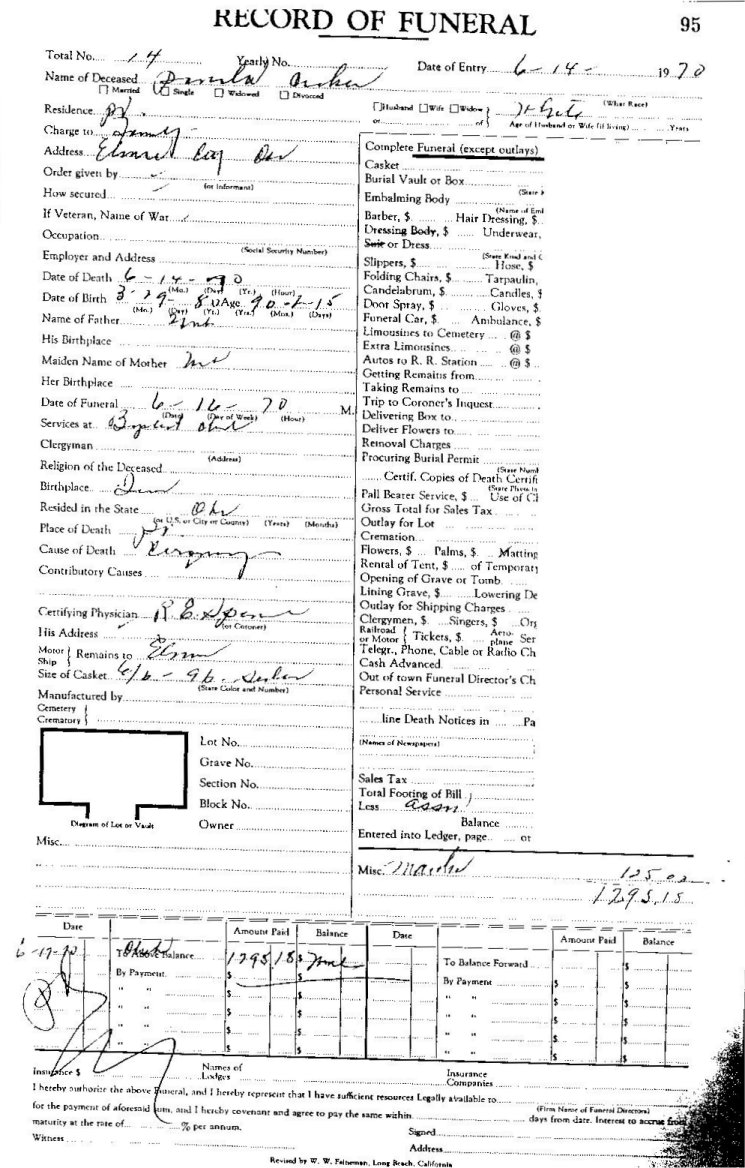 RECORD OF FUNERAL 95
Total No. 14 Yearly No. Date of Entry 6-14- 1970
Name of Deceased
Married Single Widowed Divorced
Husband Wife Widow (What Race)
Residence
or of Age of Husband or Wife (if living) Years
Charge to Family
Address
Order given by
(or Informant)
How secured
If Veteran, Name of War
Occupation
(Social Security Number)
Employer and Address
Date of Death 6-14-70
(Mo.) (Day) (Yr.) (Hour)
Date of Birth 3-29-80 Age 90-2-15
(Mo.) (Day) (Yr.) (Yrs.) (Mos.) (Days)
Name of Father
His Birthplace
Maiden Name of Mother
Her Birthplace
Date of Funeral 6-16-70 M.
(Date) (Day of Week) (Hour)
Services at Baptist
Clergyman
(Address)
Religion of the Deceased
Birthplace
Resided in the State
(or U.S. or City or County) (Years) (Months)
Place of Death
Cause of Death
Contributory Causes
Certifying Physician R. E.
(or Coroner)
His Address
Motor Ship Remains to
Size of Casket 6/6 -
(State Color and Number)
Manufactured by
Cemetery
Crematory
Lot No.
Grave No.
Section No.
Block No.
Diagram of Lot or Vault Owner
Misc.
Complete Funeral (except outlays)
Casket
Burial Vault or Box
(State
Embalming Body
(Name of Emb
Barber, $ Hair Dressing, $
Dressing Body, $ Underwear,
Suit or Dress
(State Kind and C
Slippers, $ Hose, $
Folding Chairs, $ Tarpaulin,
Candelabrum, $ Candles, $
Door Spray, $ Gloves, $
Funeral Car, $ Ambulance, $
Limousines to Cemetery @ $
Extra Limousines @ $
Autos to R. R. Station @ $
Getting Remains from
Taking Remains to
Trip to Coroner's Inquest
Delivering Box to
Deliver Flowers to
Removal Charges
Procuring Burial Permit
(State Numb
Certif. Copies of Death Certifi
(State Phone
Pall Bearer Service, $ Use of Cl
Gross Total for Sales Tax
Outlay for Lot
Cremation
Flowers, $ Palms, $ Matting
Rental of Tent, $ of Temporary
Opening of Grave or Tomb
Lining Grave, $ Lowering De
Outlay for Shipping Charges
Clergymen, $ Singers, $ Org
Railroad or Motor Tickers, $ Aeroplane Ser
Telegr., Phone, Cable or Radio Ch
Cash Advanced
Out of town Funeral Director's Ch
Personal Service
line Death Notices in Pa
(Names of Newspapers)
Sales Tax
Total Footing of Bill
Less Assn
Balance
Entered into Ledger, page or
Misc. 125.00
1295.15
Date Amount Paid Balance Date Amount Paid Balance
6-17-70 To Above Balance 1295 18 $ To Balance Forward $
By Payment $ $ By Payment $ $
" " $ $ " " $ $
" " $ $ " " $ $
" " $ $ " " $ $
Insurance $ Names of Lodges Insurance Companies
I hereby authorize the above Funeral, and I hereby represent that I have sufficient resources Legally available to
(Firm Name of Funeral Directors)
for the payment of aforesaid sum, and I hereby covenant and agree to pay the same within days from date. Interest to accrue from
maturity at the rate of % per annum. Signed
Witness Address
Revised by W. W. Feineman, Long Beach, California